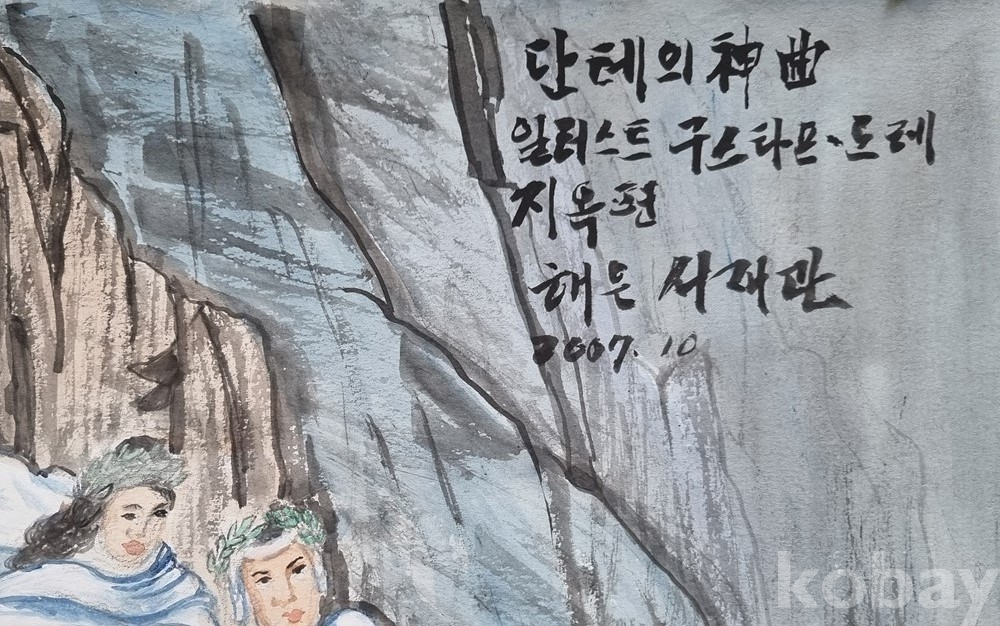 단테의 神曲
일러스트 구스타프·도레
지옥편
해은 서재관
2007. 10
kobay